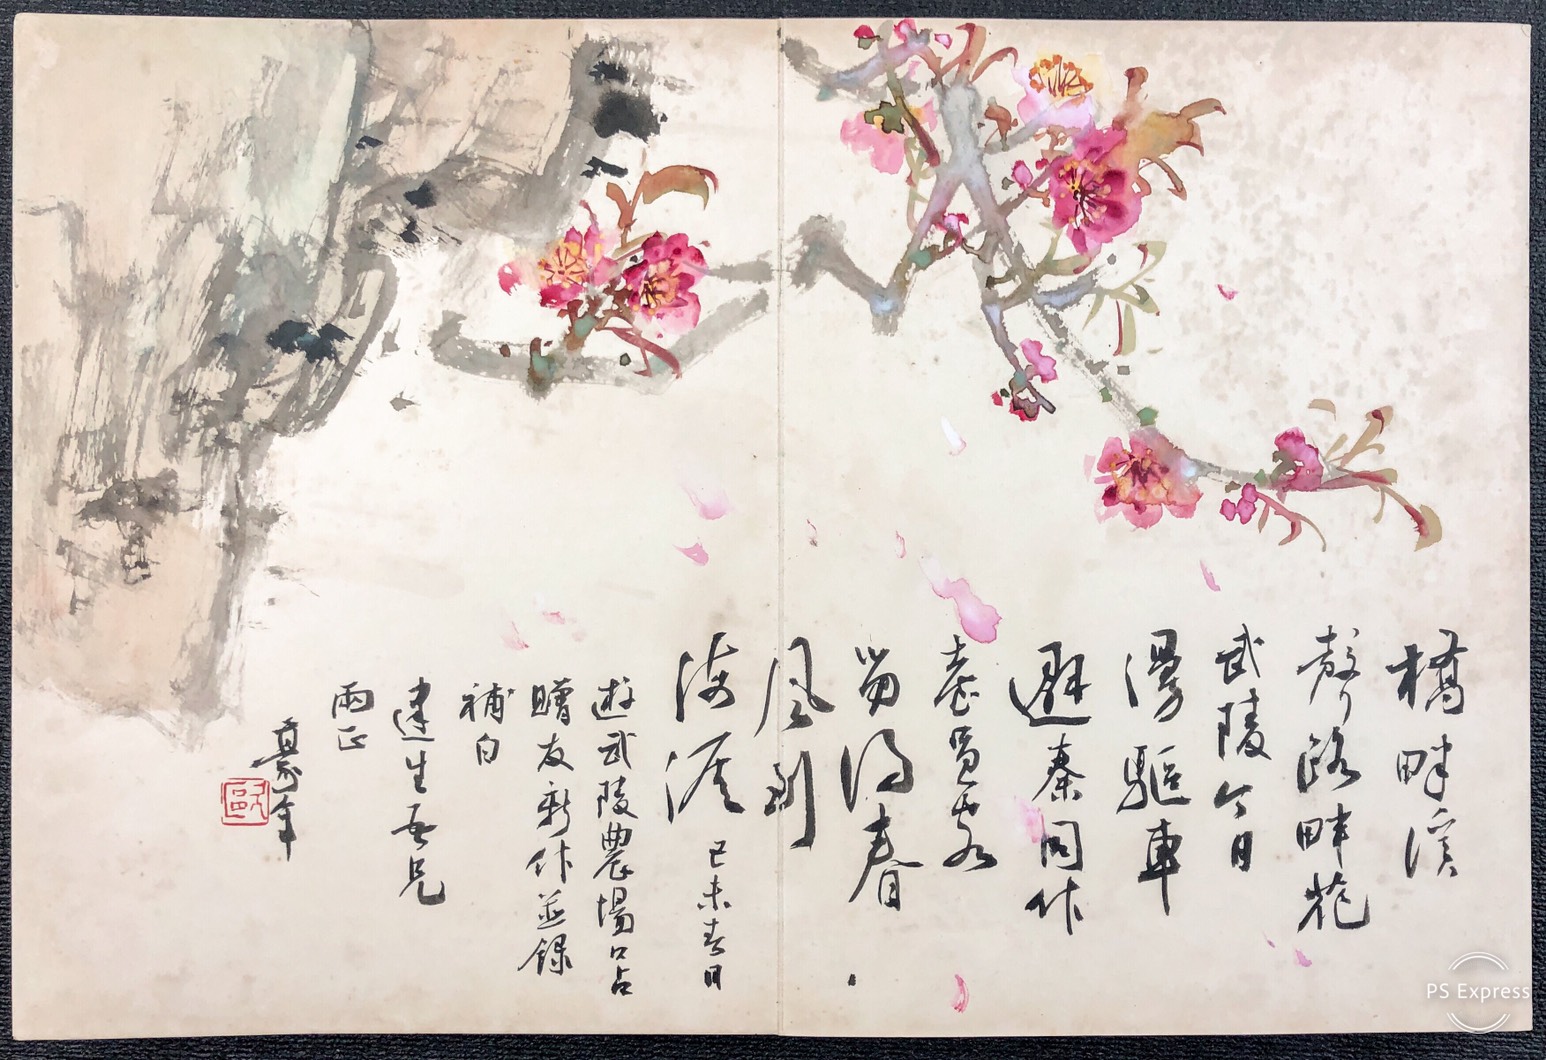 橋畔溪
聲路畔花
武陵今日
漫驅車
避秦同作
客
留得春
風到
海涯 己未春日
遊武陵農場口占
贈友新作並錄
補白
建生吾兄
兩正
豪年
歐
PS Express